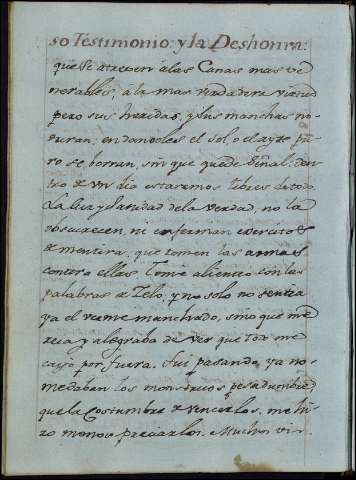 so Testimonio: y la Deshonra:
que se atreven à las Canas mas ve
nerables, a la mas verdadera virtud
pero sus heridas, y sus manchas no
duran: en dandoles el sol, o el ayre pu
ro se borran, sin que quede señal: den
tro de un dia estaremos libres de todo.
La luz y la sanidad de la verdad, no la
obscurecen, ni enferman exercitos
de mentira, que tomen las armas
contra ellas. Tomè aliento con las
palabras de Zelo, y no solo no sentia
ya el verme manchado, sino que me
reia y alegraba de ver que todo me
cayo por fuera. Fui pasando, ya no
me daban los monstruos pesadumbre
que la Costumbre de vencerlos, me hi
zo menos preciarlos. Muchos vi-